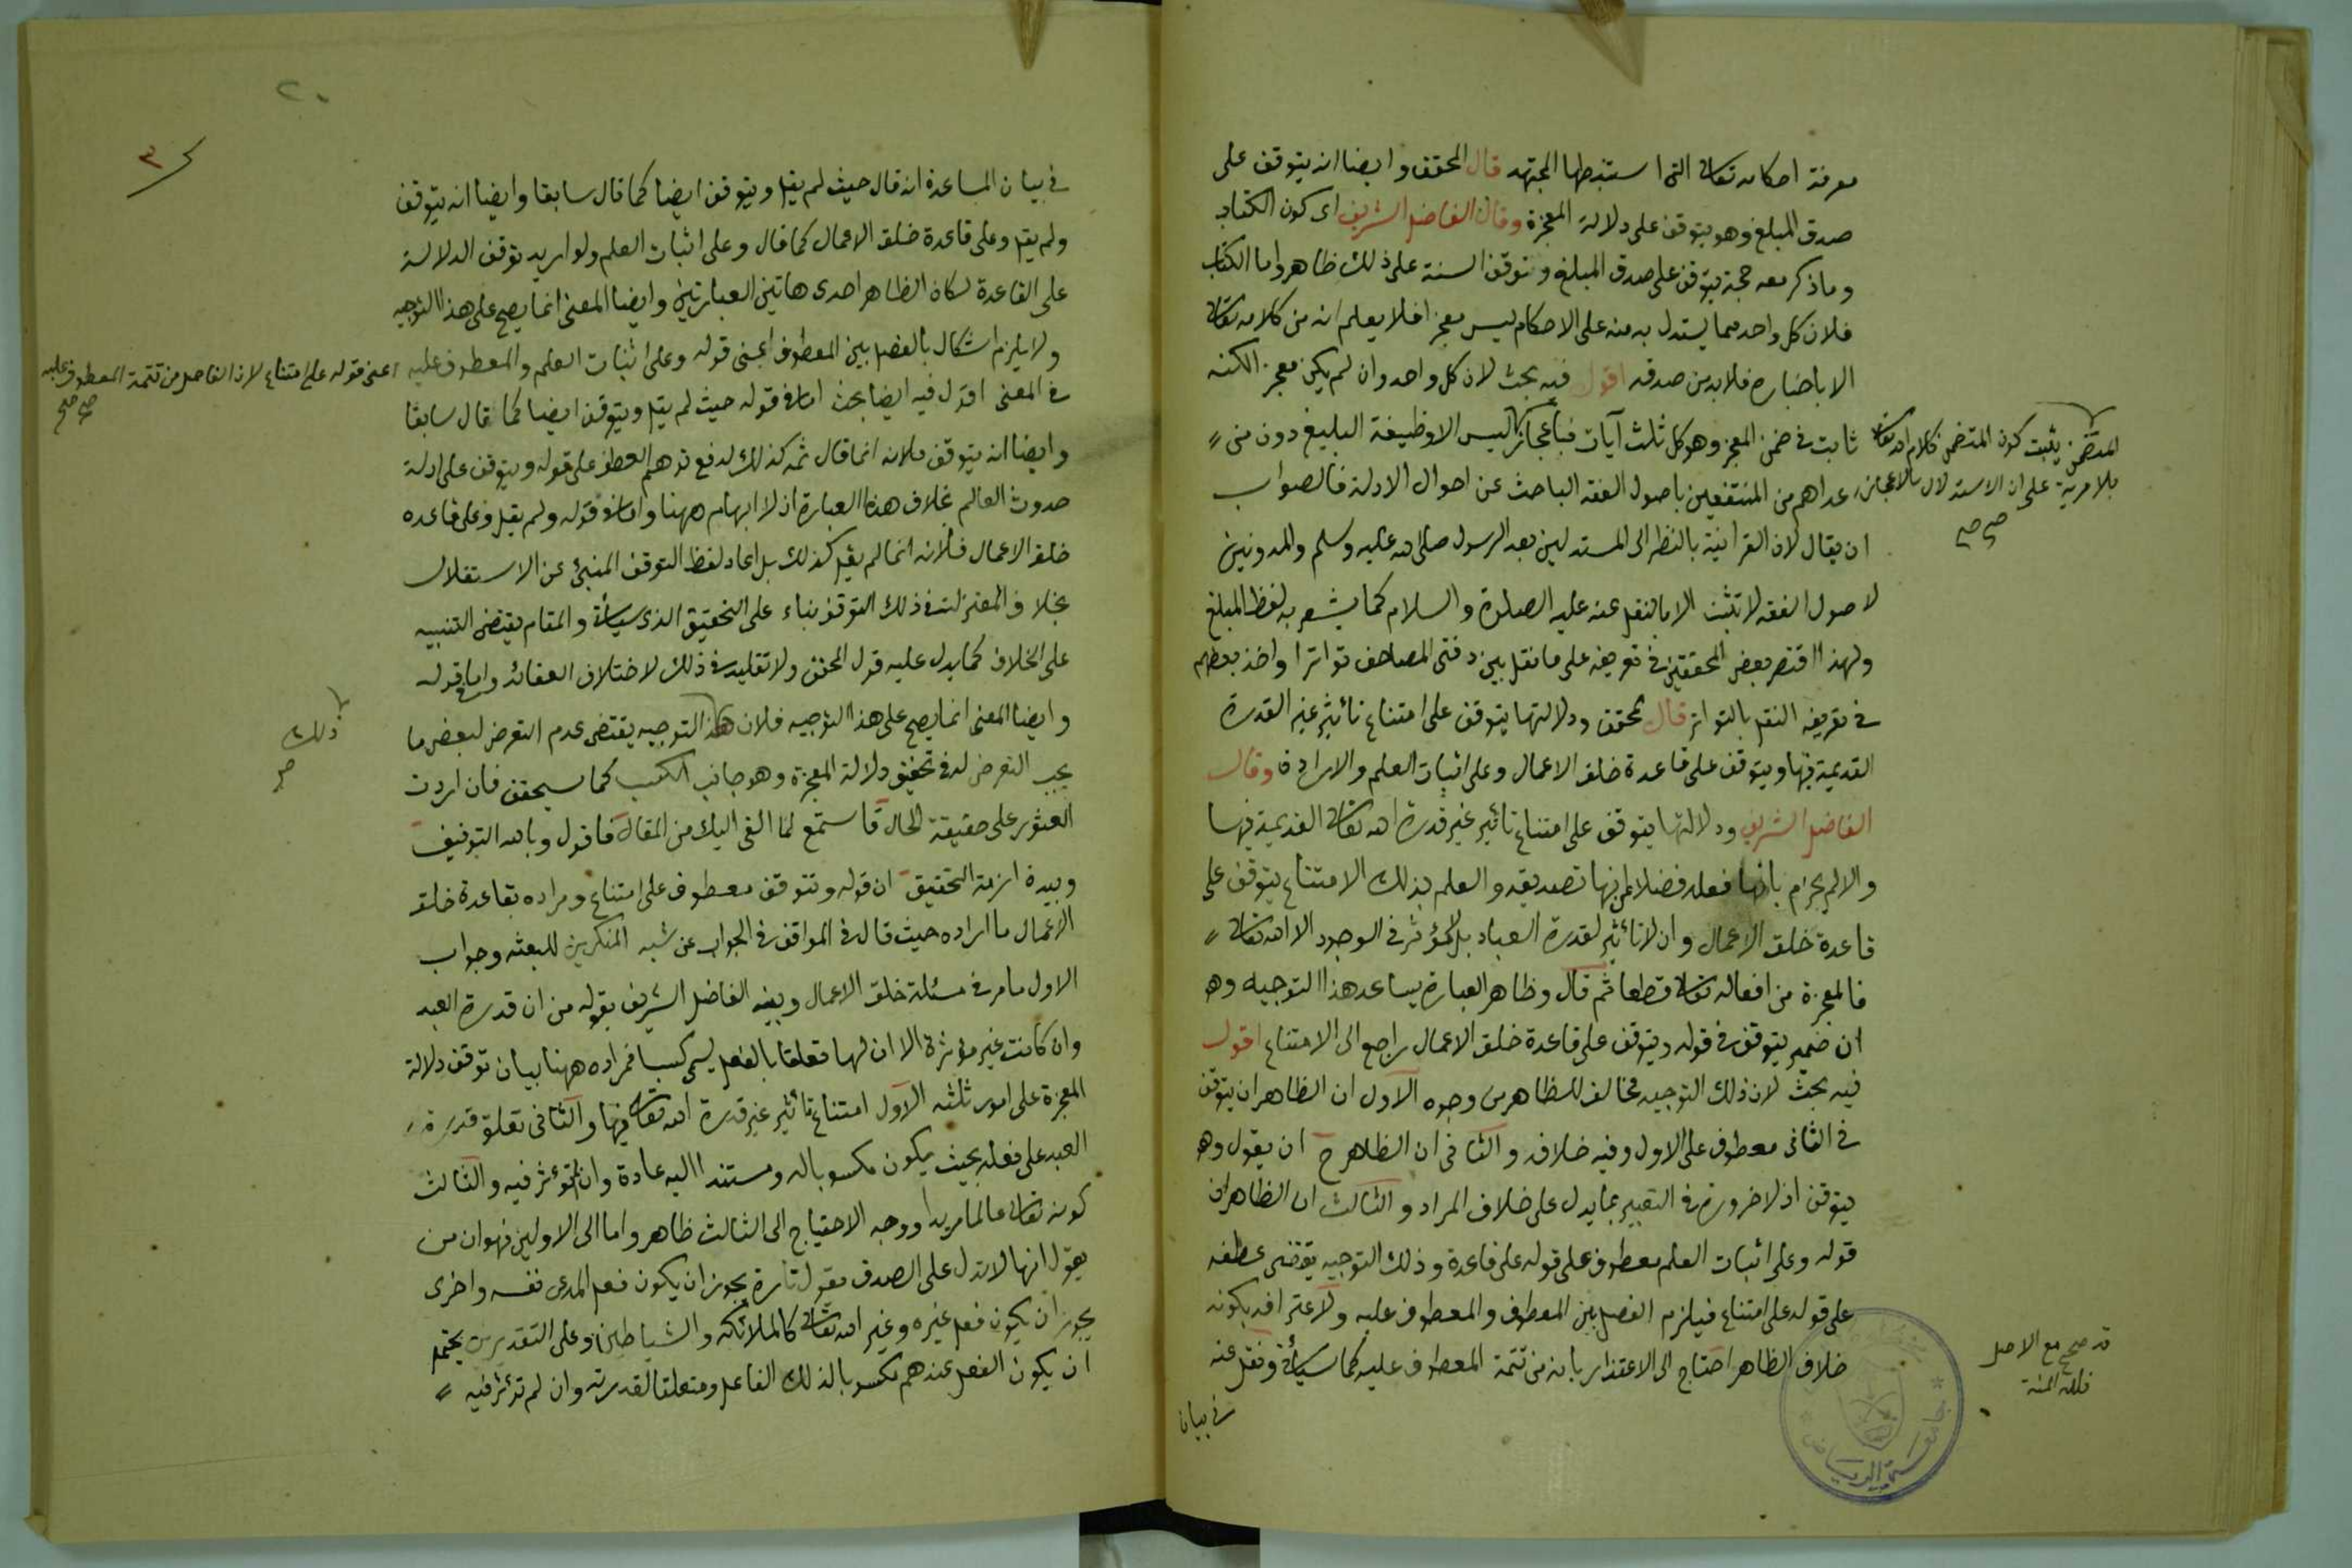 معرفة احكامه تعالى التى استنبطها المجتهد قال المحقق وايضا انه يتوقف على
صدق المبلغ وهو يتوقف على دلالة المعجزة وقال الفاضل الشريف اى كون الكتاب
وما ذكر معه حجة يتوقف على صدق المبلغ وتوقف السنة على ذلك ظاهر واما الكتاب
فلان كل واحد مما يستدل به منه على الاحكام ليس معجزا فلا يعلم انه من كلامه تعالى
الا باخباره فلا بد من صدقه اقول فيه بحث لان كل واحد وان لم يكن معجزا لكنه
ثابت فى ضمن المعجز وهو كل ثلث آيات فباعجاز اليس الا وظيفة البليغ دون من
المتضمن يثبت كون المتضمن كلام الله تعالى
بلا مرية على ان الاستدلال بالاعجاز
صح صح
عداهم من المنتفعين باصول الفقه الباحث عن احوال الادلة فالصواب
ان يقال لان القرانية بالنظر الى المستدلين بعد الرسول صلى الله عليه وسلم والمدونين
لاصول الفقه لا تثبت الا بالنقل عنه عليه الصلوة والسلام كما يشعر به لفظ المبلغ
ولهذا اقتصر بعض المحققين فى تعريفه على ما نقل بين دفتى المصاحف تواترا واخذ بعضهم
فى تعريفه النقل بالتواتر قال المحقق ودلالتها يتوقف على امتناع تأثير غير القدرة
القديمة فيها ويتوقف على قاعدة خلق الاعمال وعلى اثبات العلم والارادة وقال
الفاضل الشريف ودلالتها يتوقف على امتناع تاثير غير قدرة الله تعالى القديمة فيها
والا لم يجزم بانها فعله فضلا عن انها تصديقه والعلم بذلك الامتناع يتوقف على
قاعدة خلق الاعمال وان لا تأثير لقدرة العباد بل لا مؤثر فى الوجود الا الله تعالى
فالمعجزة من افعاله تعالى قطعا ثم قال وظاهر العبارة يساعد هذا التوجيه وهو
ان ضمير يتوقف فى قوله ويتوقف على قاعدة خلق الاعمال راجع الى الامتناع اقول
فيه بحث لان ذلك التوجيه مخالف للظاهر من وجوه الاول ان الظاهر ان يتوقف
فى الثانى معطوف على الاول وفيه خلافه والثانى ان الظاهر ح ان يقول وهو
يتوقف اذ لا ضرورة فى التعبير بما يدل على خلاف المراد والثالث ان الظاهر ان
قوله وعلى اثبات العلم معطوف على قوله على قاعدة وذلك التوجيه يقتضى عطفه
على قوله على امتناع فيلزم الفصل بين المعطوف والمعطوف عليه ولاعترافه بكونه
خلاف الظاهر احتاج الى الاعتذار بانه من تتمة المعطوف عليه كما سيأتى ونقل عنه
فى بيان
قد صحح مع الاصل
فلله المنة
جامعة الرياض
٢٠
٣
فى بيان المساعدة انه قال حيث لم يقل ويتوقف ايضا كما قال سابقا وايضا انه يتوقف
ولم يقل وعلى قاعدة خلق الاعمال كما قال وعلى اثبات العلم ولو اريد توقف الدلالة
على القاعدة لكان الظاهر احدى هاتين العبارتين وايضا المعنى انما يصح على هذا التوجيه
ولا يلزم اشكال بالفصل بين المعطوف اعنى قوله وعلى اثبات العلم والمعطوف عليه
اعنى قوله على امتناع لان الفاصل من تتمة المعطوف عليه
صح صح
فى المعنى اقول فيه ايضا بحث اما فى قوله حيث لم يقل ويتوقف ايضا كما قال سابقا
وايضا انه يتوقف فلانه انما قال ثمه كذلك لدفع توهم العطف على قوله ويتوقف على ادلة
حدوث العالم بخلاف هذه العبارة اذ لا ابهام ههنا واما فى قوله ولم يقل وعلى قاعدة
خلق الاعمال فلانه انما لم يقل كذلك بل اعاد لفظ التوقف المنبئ عن الاستقلال
بخلاف المعتزلة فى ذلك التوقف بناء على التحقيق الذى سيأتى والمقام يقتضى التنبيه
على الخلاف كما يدل عليه قول المحقق ولا تقليد فى ذلك لاختلاف العقائد واما فى قوله
وايضا المعنى انما يصح على هذا التوجيه فلان هذا التوجيه يقتضى عدم التعرض لبعض ما
ذلك
صح
يجب التعرض له فى تحقيق دلالة المعجزة وهو جانب الكسب كما سيحقق فان اردت
العثور على حقيقة الحال فاستمع لما القى اليك من المقال فاقول وبالله التوفيق
وبيده ازمة التحقيق ان قوله ويتوقف معطوف على امتناع ومراده بقاعدة خلق
الاعمال ما اراده حيث قال فى المواقف فى الجواب عن شبه المنكرين للبعثه وجواب
الاول ما مر فى مسئلة خلق الاعمال وبينه الفاضل الشريف بقوله من ان قدرة العبد
وان كانت غير مؤثرة الا ان لها تعلقا بالفعل يسمى كسبا فمراده ههنا بيان توقف دلالة
المعجزة على امور ثلثه الاول امتناع تأثير غير قدرة الله تعالى فيها والثانى تعلق قدرة
العبد على فعله بحيث يكون مكسوبا له ومستندا اليه عادة وان لم تؤثر فيه والثالث
كونه تعالى عالما مريدا ووجه الاحتياج الى الثالث ظاهر واما الى الاولين فهو ان من
يقول انها لا تدل على الصدق يقول تارة يجوز ان يكون فعل المدعى نفسه واخرى
يجوز ان يكون فعل غيره وغير الله تعالى كالملائكة والشياطين وعلى التقديرين يحتمل
ان يكون الفعل عندهم مكسوبا لذلك الفاعل ومتعلقا لقدرته وان لم تؤثر فيه